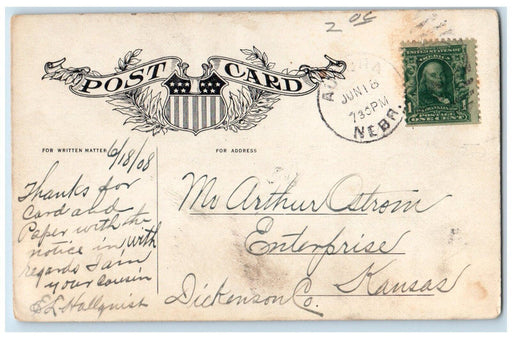 2 00
POST CARD
AURORA
JUN 18
730PM
NEBR.
UNITED STATES OF
AMERICA
1 1
POSTAGE
ONE CENT
FOR WRITTEN MATTER
FOR ADDRESS
6/18/08
Thanks for
Card and
Paper with the
notice in, with
regards I am
your cousin
E L Hallquist
Mr Arthur Ostrom
Enterprise
Kansas
Dickenson Co.